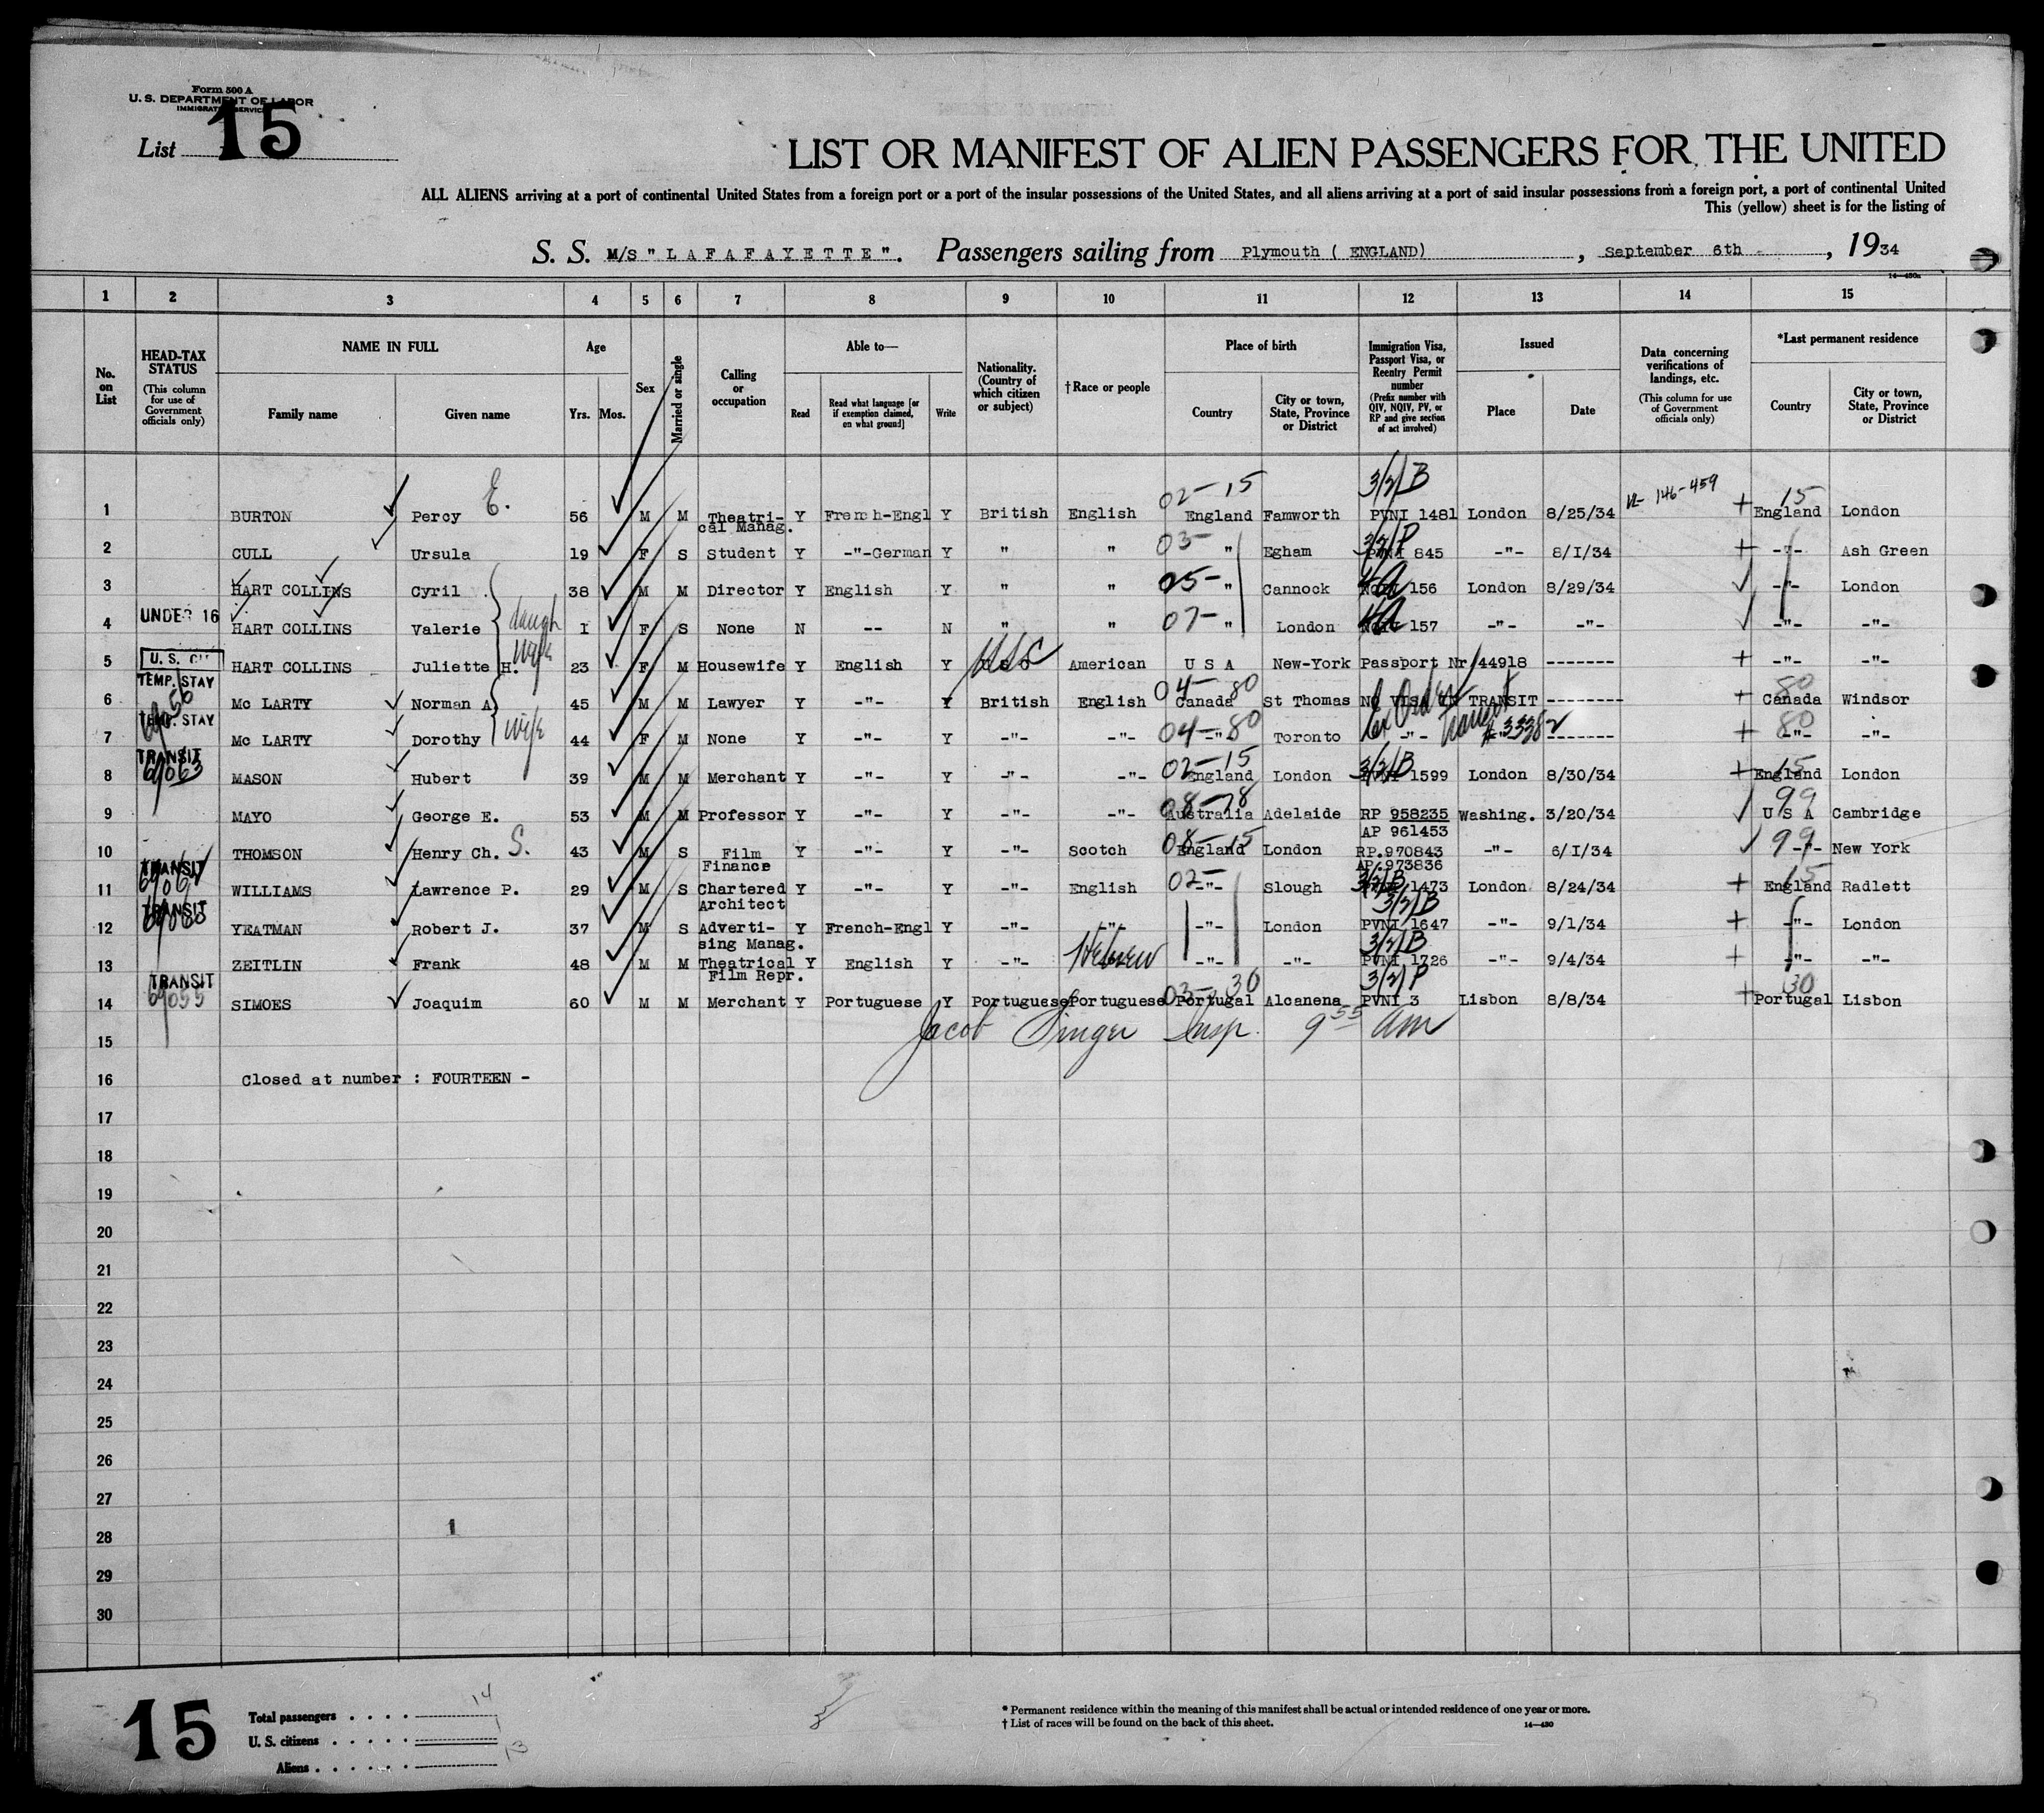 Form 500 A
U. S. DEPARTMENT OF LABOR
IMMIGRATION SERVICE
List 15
LIST OR MANIFEST OF ALIEN PASSENGERS FOR THE UNITED
ALL ALIENS arriving at a port of continental United States from a foreign port or a port of the insular possessions of the United States, and all aliens arriving at a port of said insular possessions from a foreign port, a port of continental United
This (yellow) sheet is for the listing of
S. S. M/S " L A F A F A Y E T T E ". Passengers sailing from Plymouth ( ENGLAND) , September 6th , 1934
14—430a
1 2 3 4 5 6 7 8 9 10 11 12 13 14 15
No. on List
HEAD-TAX STATUS (This column for use of Government officials only)
NAME IN FULL Family name Given name
Age Yrs. Mos.
Sex
Married or single
Calling or occupation
Able to— Read Read what language [or if exemption claimed, on what ground] Write
Nationality. (Country of which citizen or subject)
†Race or people
Place of birth Country City or town, State, Province or District
Immigration Visa, Passport Visa, or Reentry Permit number (Prefix number with QIV, NQIV, PV, or RP and give section of act involved)
Issued Place Date
Data concerning verifications of landings, etc. (This column for use of Government officials only)
*Last permanent residence Country City or town, State, Province or District
1 BURTON Percy E. 56 M M Theatrical Manag. Y French-Engl Y British English 02-15 England Famworth 3/2/B PVNI 1481 London 8/25/34 146-459 + 15 England London
2 CULL Ursula 19 F S Student Y -"-German Y " " 03- " Egham 845 -"- 8/I/34 + -"- Ash Green
3 HART COLLINS Cyril 38 M M Director Y English Y " " 05- " Cannock 4A 156 London 8/29/34 -"- London
UNDER 16
4 HART COLLINS Valerie daugh I F S None N -- N " " 07- " London 4A 157 -"- -"- -"- -"-
U. S. CIT
5 HART COLLINS Juliette H. wife 23 F M Housewife Y English Y USC American U S A New-York Passport Nr 44918 ------- + -"- -"-
TEMP. STAY
6 Mc LARTY Norman A 45 M M Lawyer Y -"- Y British English 04-80 Canada St Thomas NO VISA IN TRANSIT -------- + 80 Canada Windsor
TEMP. STAY
7 Mc LARTY Dorothy wife 44 F M None Y -"- Y -"- -"- 04-80 -"- Toronto -"- ------- + 80 -"- -"-
TRANSIT 69063
8 MASON Hubert 39 M M Merchant Y -"- Y -"- -"- 02-15 England London 3/2/B PVNI 1599 London 8/30/34 + 15 England London
9 MAYO George E. 53 M M Professor Y -"- Y -"- -"- 08-78 Australia Adelaide RP 958235 AP 961453 Washing. 3/20/34 99 U S A Cambridge
10 THOMSON Henry Ch. S. 43 M S Film Finance Y -"- Y -"- Scotch 08-15 England London RP.970843 AP.973836 -"- 6/I/34 99 -"- New York
TRANSIT
11 WILLIAMS Lawrence P. 29 M S Chartered Architect Y -"- Y -"- English 02- -"- Slough 3/2/B 1473 London 8/24/34 + 15 England Radlett
TRANSIT
12 YEATMAN Robert J. 37 M S Advertising Manag. Y French-Engl Y -"- -"- -"- London 3/2/B PVNI 1647 -"- 9/1/34 + -"- London
13 ZEITLIN Frank 48 M M Theatrical Film Repr. Y English Y -"- Hebrew -"- -"- 3/2/B PVNI 1726 -"- 9/4/34 + -"- -"-
TRANSIT 69055
14 SIMOES Joaquim 60 M M Merchant Y Portuguese Y Portuguese Portuguese 03-30 Portugal Alcanena 3/2/P PVNI 3 Lisbon 8/8/34 + 30 Portugal Lisbon
15 Jacob Singer Insp. 9 55 am
16 Closed at number : FOURTEEN -
17
18
19
20
21
22
23
24
25
26
27
28
29
30
15
Total passengers . . . . 14
U. S. citizens . . . . . 1
Aliens . . . . . . 13
* Permanent residence within the meaning of this manifest shall be actual or intended residence of one year or more.
† List of races will be found on the back of this sheet.
14—430